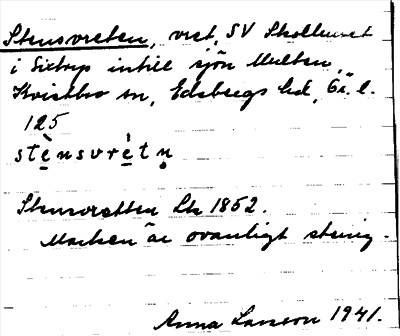 Stensvreten, vret, SV Skollunet
i Sixtorp intill sjön Multen,
Kvistbro sn, Edsbergs hd, Ör. l.
125
stènsvrètn
Stensvretten Lk 1852.
Marken är ovanligt stenig.
Anna Larsson 1941.